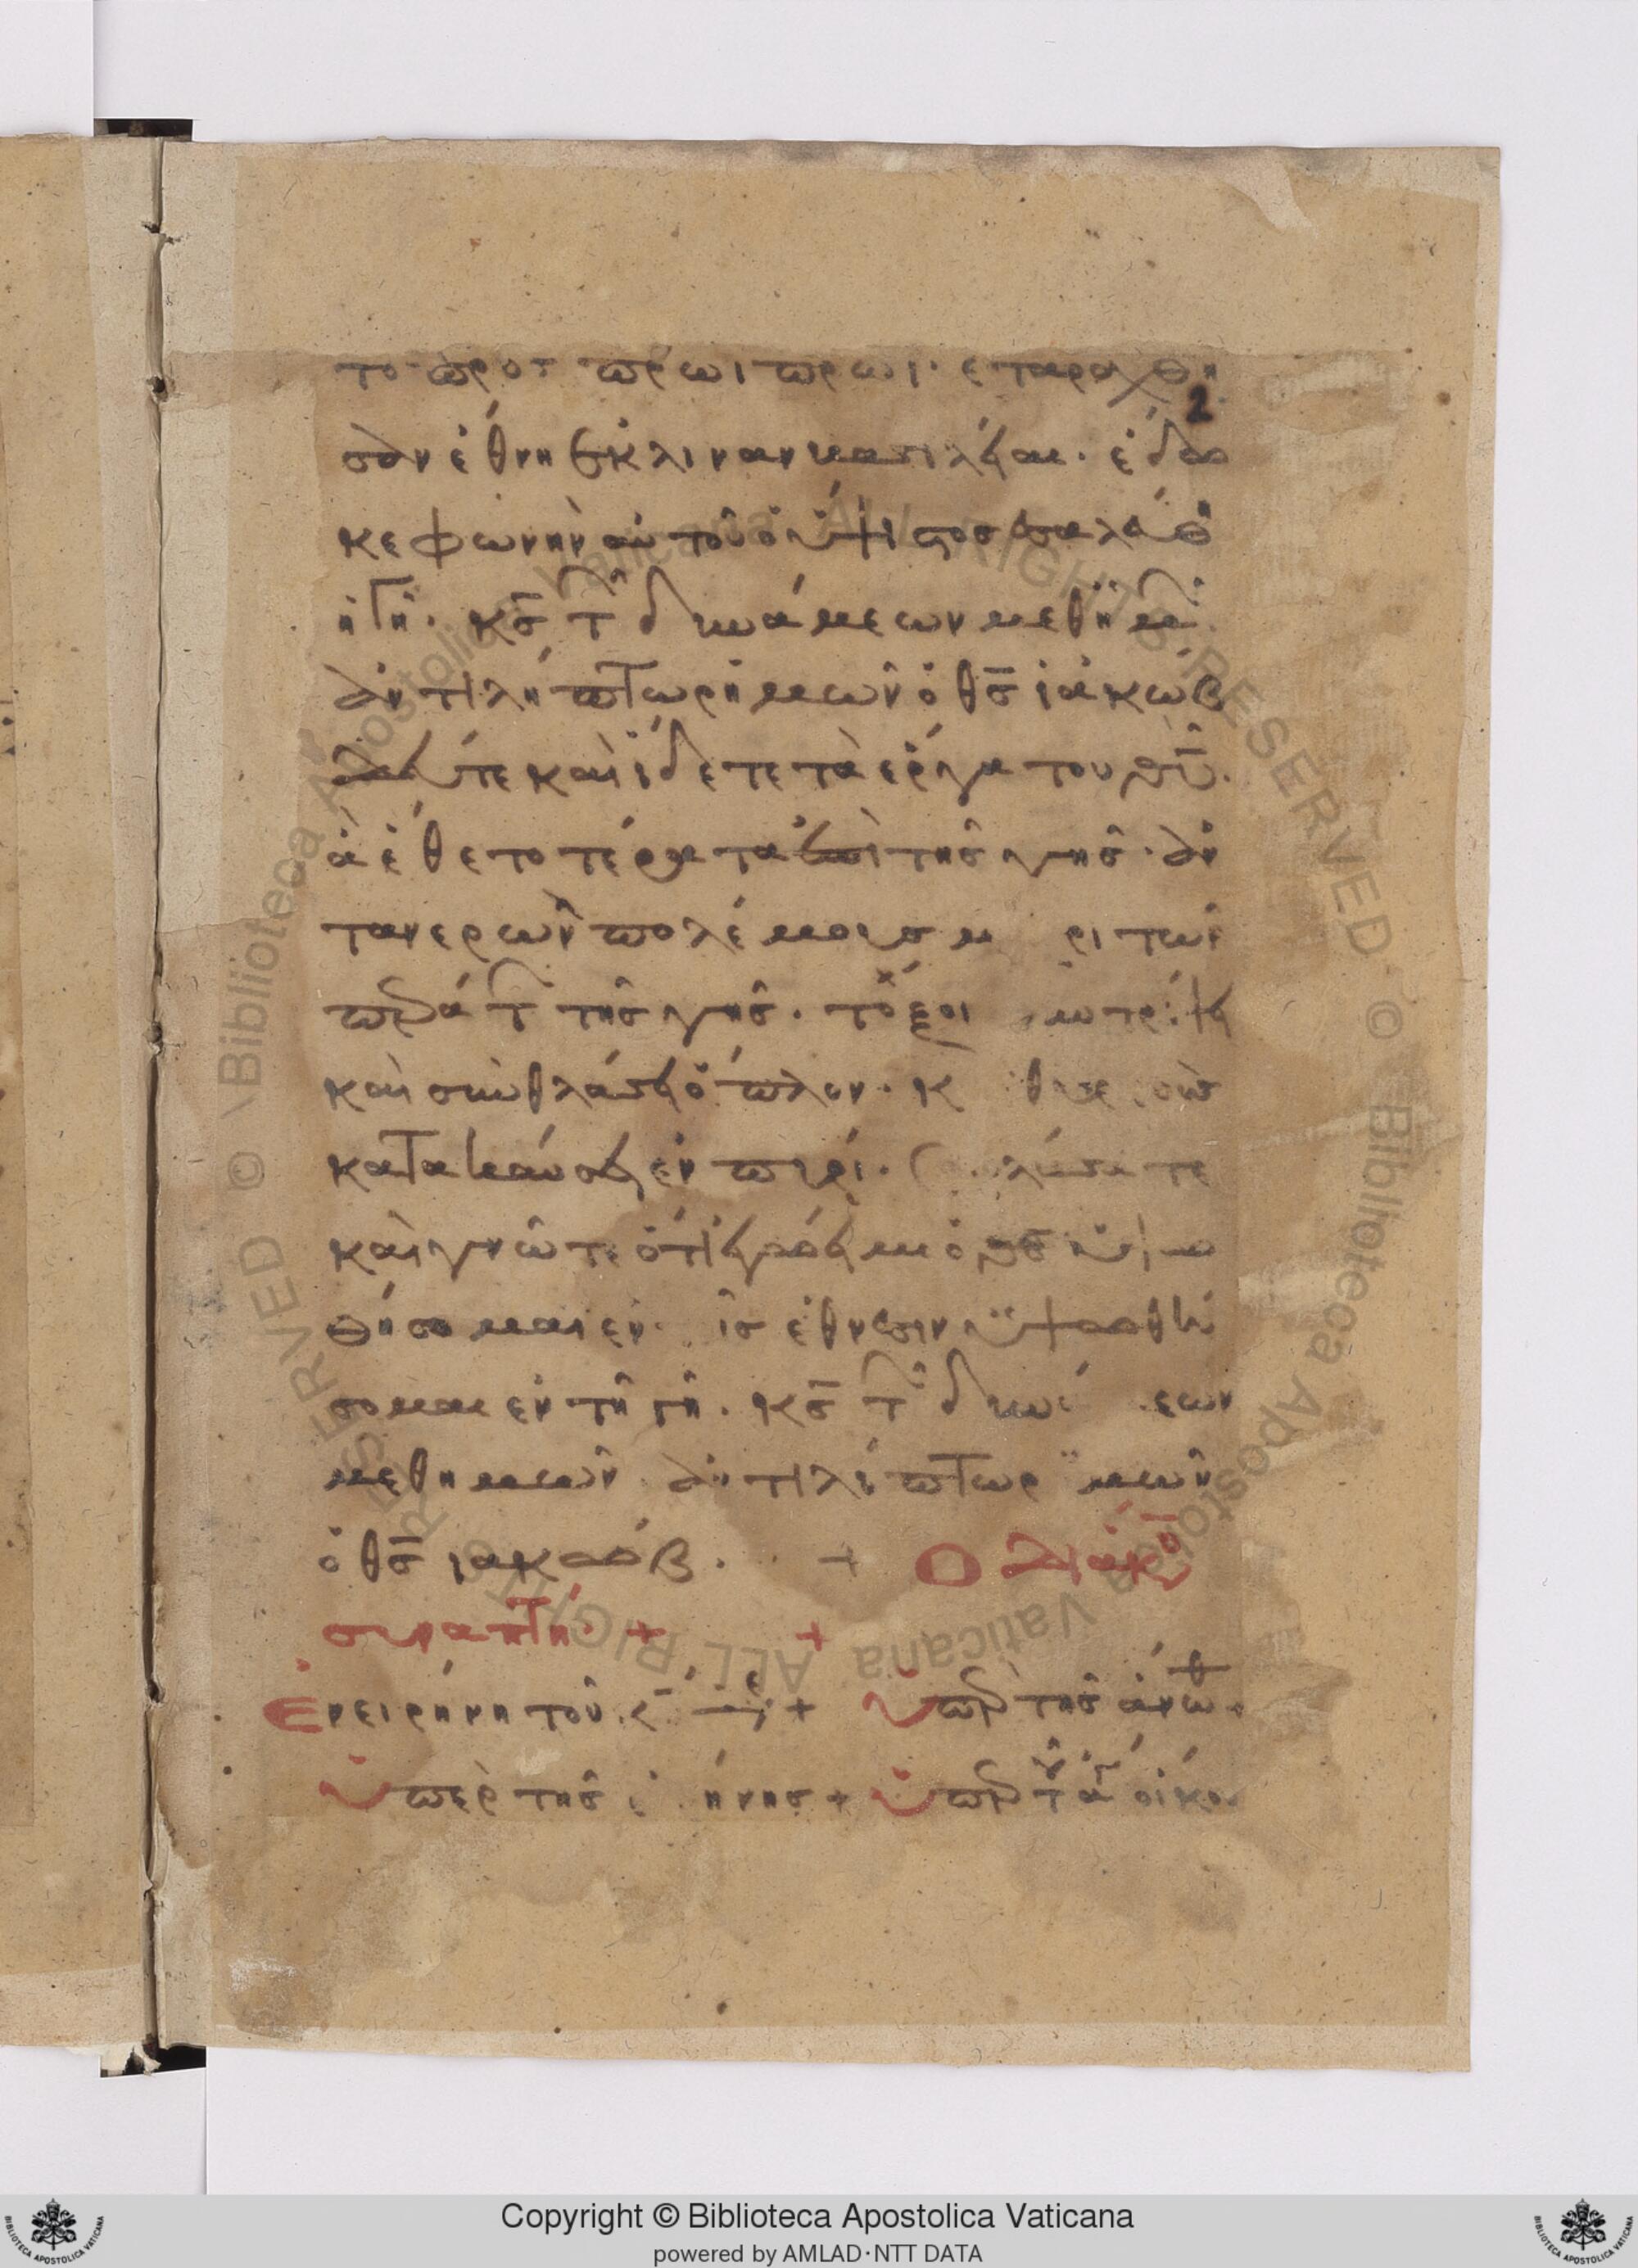 το προσ πρωι πρωι· εταραχθη
2
σαν έθνη ἔκλιναν βασιλεῖαι· ἐδω
κε φωνὴν αὐτοῦ ὁ ὕψιστοσ ἐσαλεύθ
ἡ γῆ· κσ̅ τῶν δυνάμεων μεθ ἡμῶν
ἀντιλήπτωρ ἡμῶν ὁ θσ̅ ἰακώβ
δεῦτε καὶ ἴδετε τὰ ἔργα του θυ̅·
ἃ ἔθετο τέρατα ἐπὶ τῆσ γῆσ· ἀν
τανερῶν πολέμουσ μ ρι τῶν
περάτων τῆσ γῆσ· τόξον υντρίψει
καὶ συνθλάσει ὅπλον· κ θυρεοὺσ
κατακαύσει ἐν πυρί· σχολάσατε
καὶ γνῶτε ὅτι ἐγώ εἰμι ὁ θσ̅ ὑψω
θήσομαι εν ῖσ ἔθνεσιν ὑψωθή
σομαι ἐν τῆ γῆ· κσ̅ τῶν δυνά εων
μεθ ημῶν ἀντιλήπτωρ ημῶν
ὁ θσ̅ ιακώβ· + Ο διάκο
συναπτή· + +
Εν ειρήνη τοῦ κ + ὑπὲρ τῆσ άνωθ
ὑπερ τῆσ ήνησ + ὑπὲρ τοῦ ἁγ οίκου
Copyright © Biblioteca Apostolica Vaticana
powered by AMLAD·NTT DATA